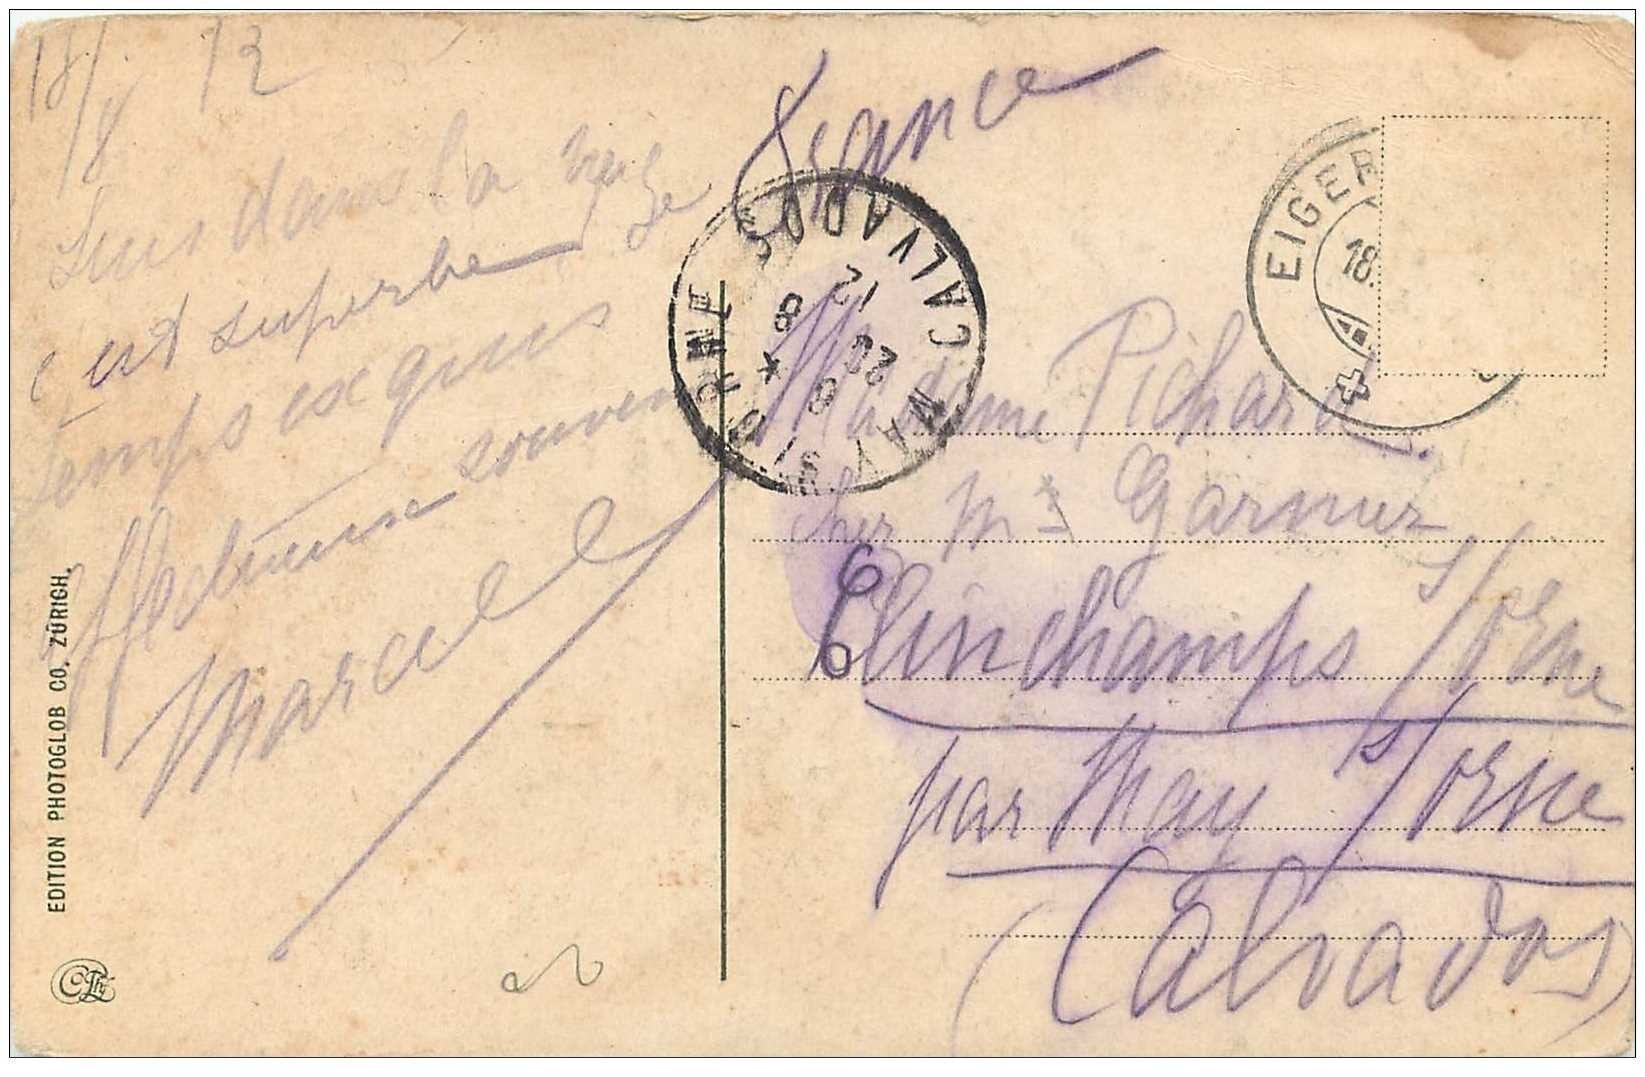 18/8 12
Suis dans la neige
C'est superbe Le
temps exquis
Affectueuse souvenir
Marcel
EDITION PHOTOGLOB CO. ZÜRICH.
France
MAY S/ ORNE CALVADOS
8 *
20
8
12
EIGER
18.
Madame Pichard
chez Mr Garnier
Clinchamps s/orne
par May s/orne
(Calvados)